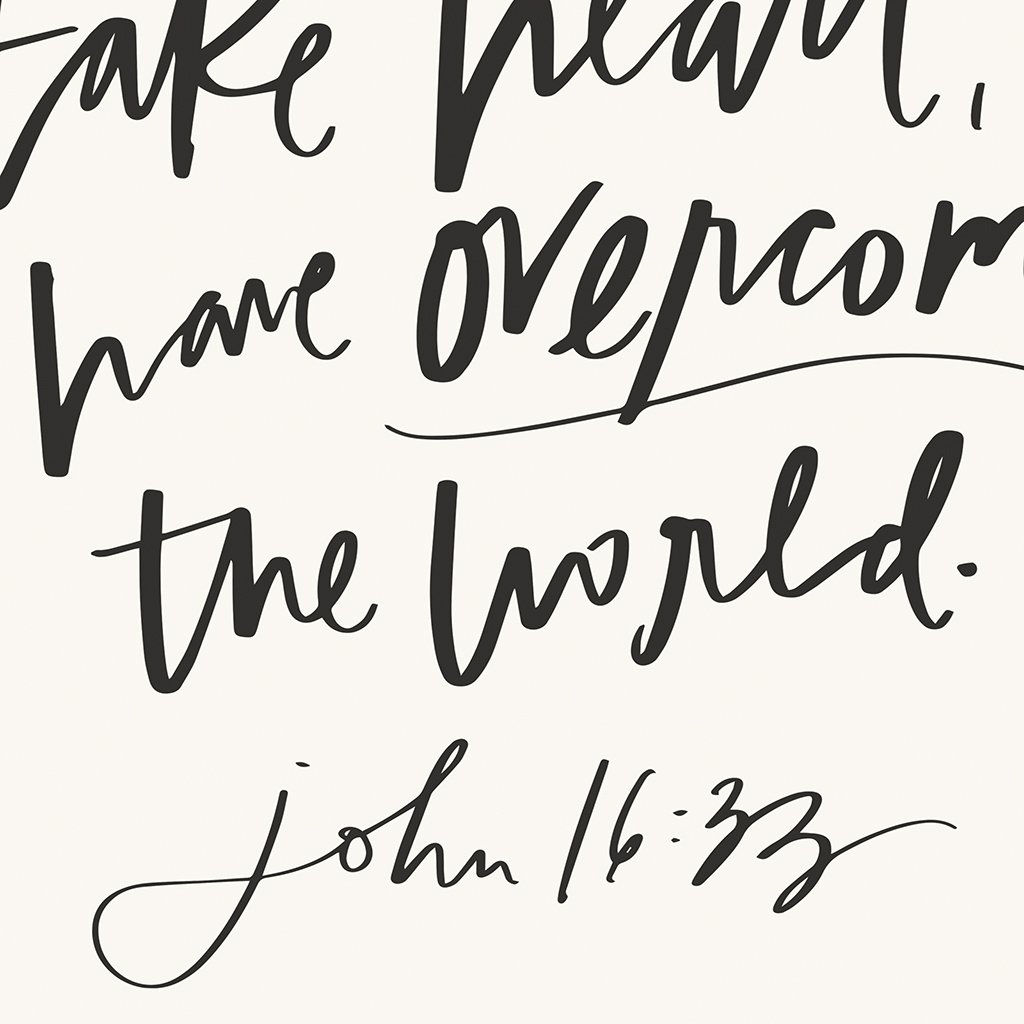 take heart,
have overcom
the world.
john 16:33